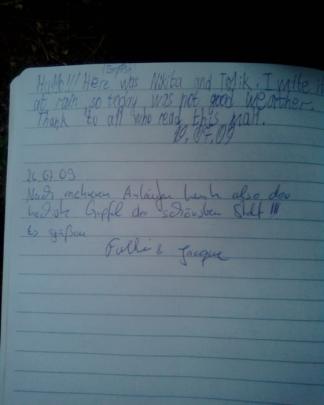 Here was Nikita and Tolik. I write it
at rain so today was not good weather.
Thank to all who read this
19.07.09
26.07.09
Nach mehreren Anläufen heute also der
Gipfel der schönsten Stadt!!!
Es grüßen
&